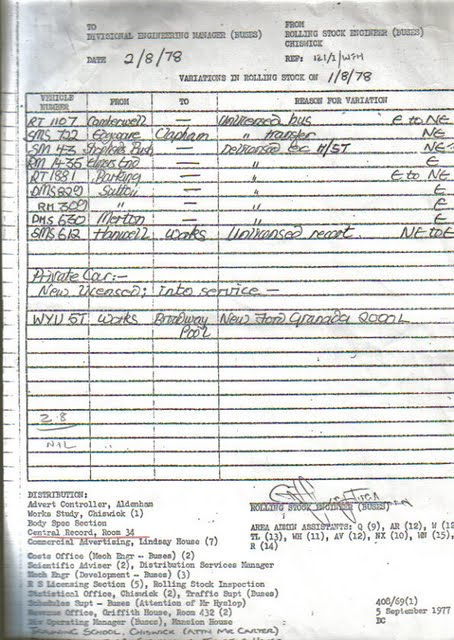 TO
DIVISIONAL ENGINEERING MANAGER (BUSES)
FROM
ROLLING STOCK ENGINEER (BUSES)
CHISWICK
DATE 2/8/78
REF:
VARIATIONS IN ROLLING STOCK ON 1/8/78
VEHICLE NUMBER FROM TO REASON FOR VARIATION
RT 1107 Camberwell — Unlicensed bus E to NE
SMS 722 Edgware Clapham " transfer NE
Shepherds Bush — Delicensed Rec H/ST NE
RM 1435 Elmers End — " E
RT 1881 Barking — " E to NE
Sutton — " E
" — " E
DMS 630 Merton — " E
SMS 612 Hanwell Works Unlicensed recert. NE to E
Private Car:-
New Licensed; into service —
Works Broadway Pool New Ford Granada 2000L
2.8
NIL
DISTRIBUTION:
Advert Controller, Aldenham
Works Study, Chiswick (1)
Body Spec Section
Central Record, Room 34
Commercial Advertising, Lindsay House (7)
Costs Office (Mech Engr - Buses) (2)
Scientific Adviser (2), Distribution Services Manager
Mech Engr (Development - Buses) (3)
R S Licensing Section (5), Rolling Stock Inspection
Statistical Office, Chiswick (2), Traffic Supt (Buses)
Schedules Supt - Buses (Attention of Mr Hyslop)
Revenue Office, Griffith House, Room 432 (2)
Div Operating Manager (Buses), Mansion House
TRAINING SCHOOL, CHISWICK (ATTN MR CARTER)
ROLLING STOCK ENGINEER (BUSES)
AREA ADMIN ASSISTANTS: Q (9), AR (12),
TL (13), WH (11), AV (12), NX (10), MN (15),
R (14)
400/69(1)
5 September 1977
DC